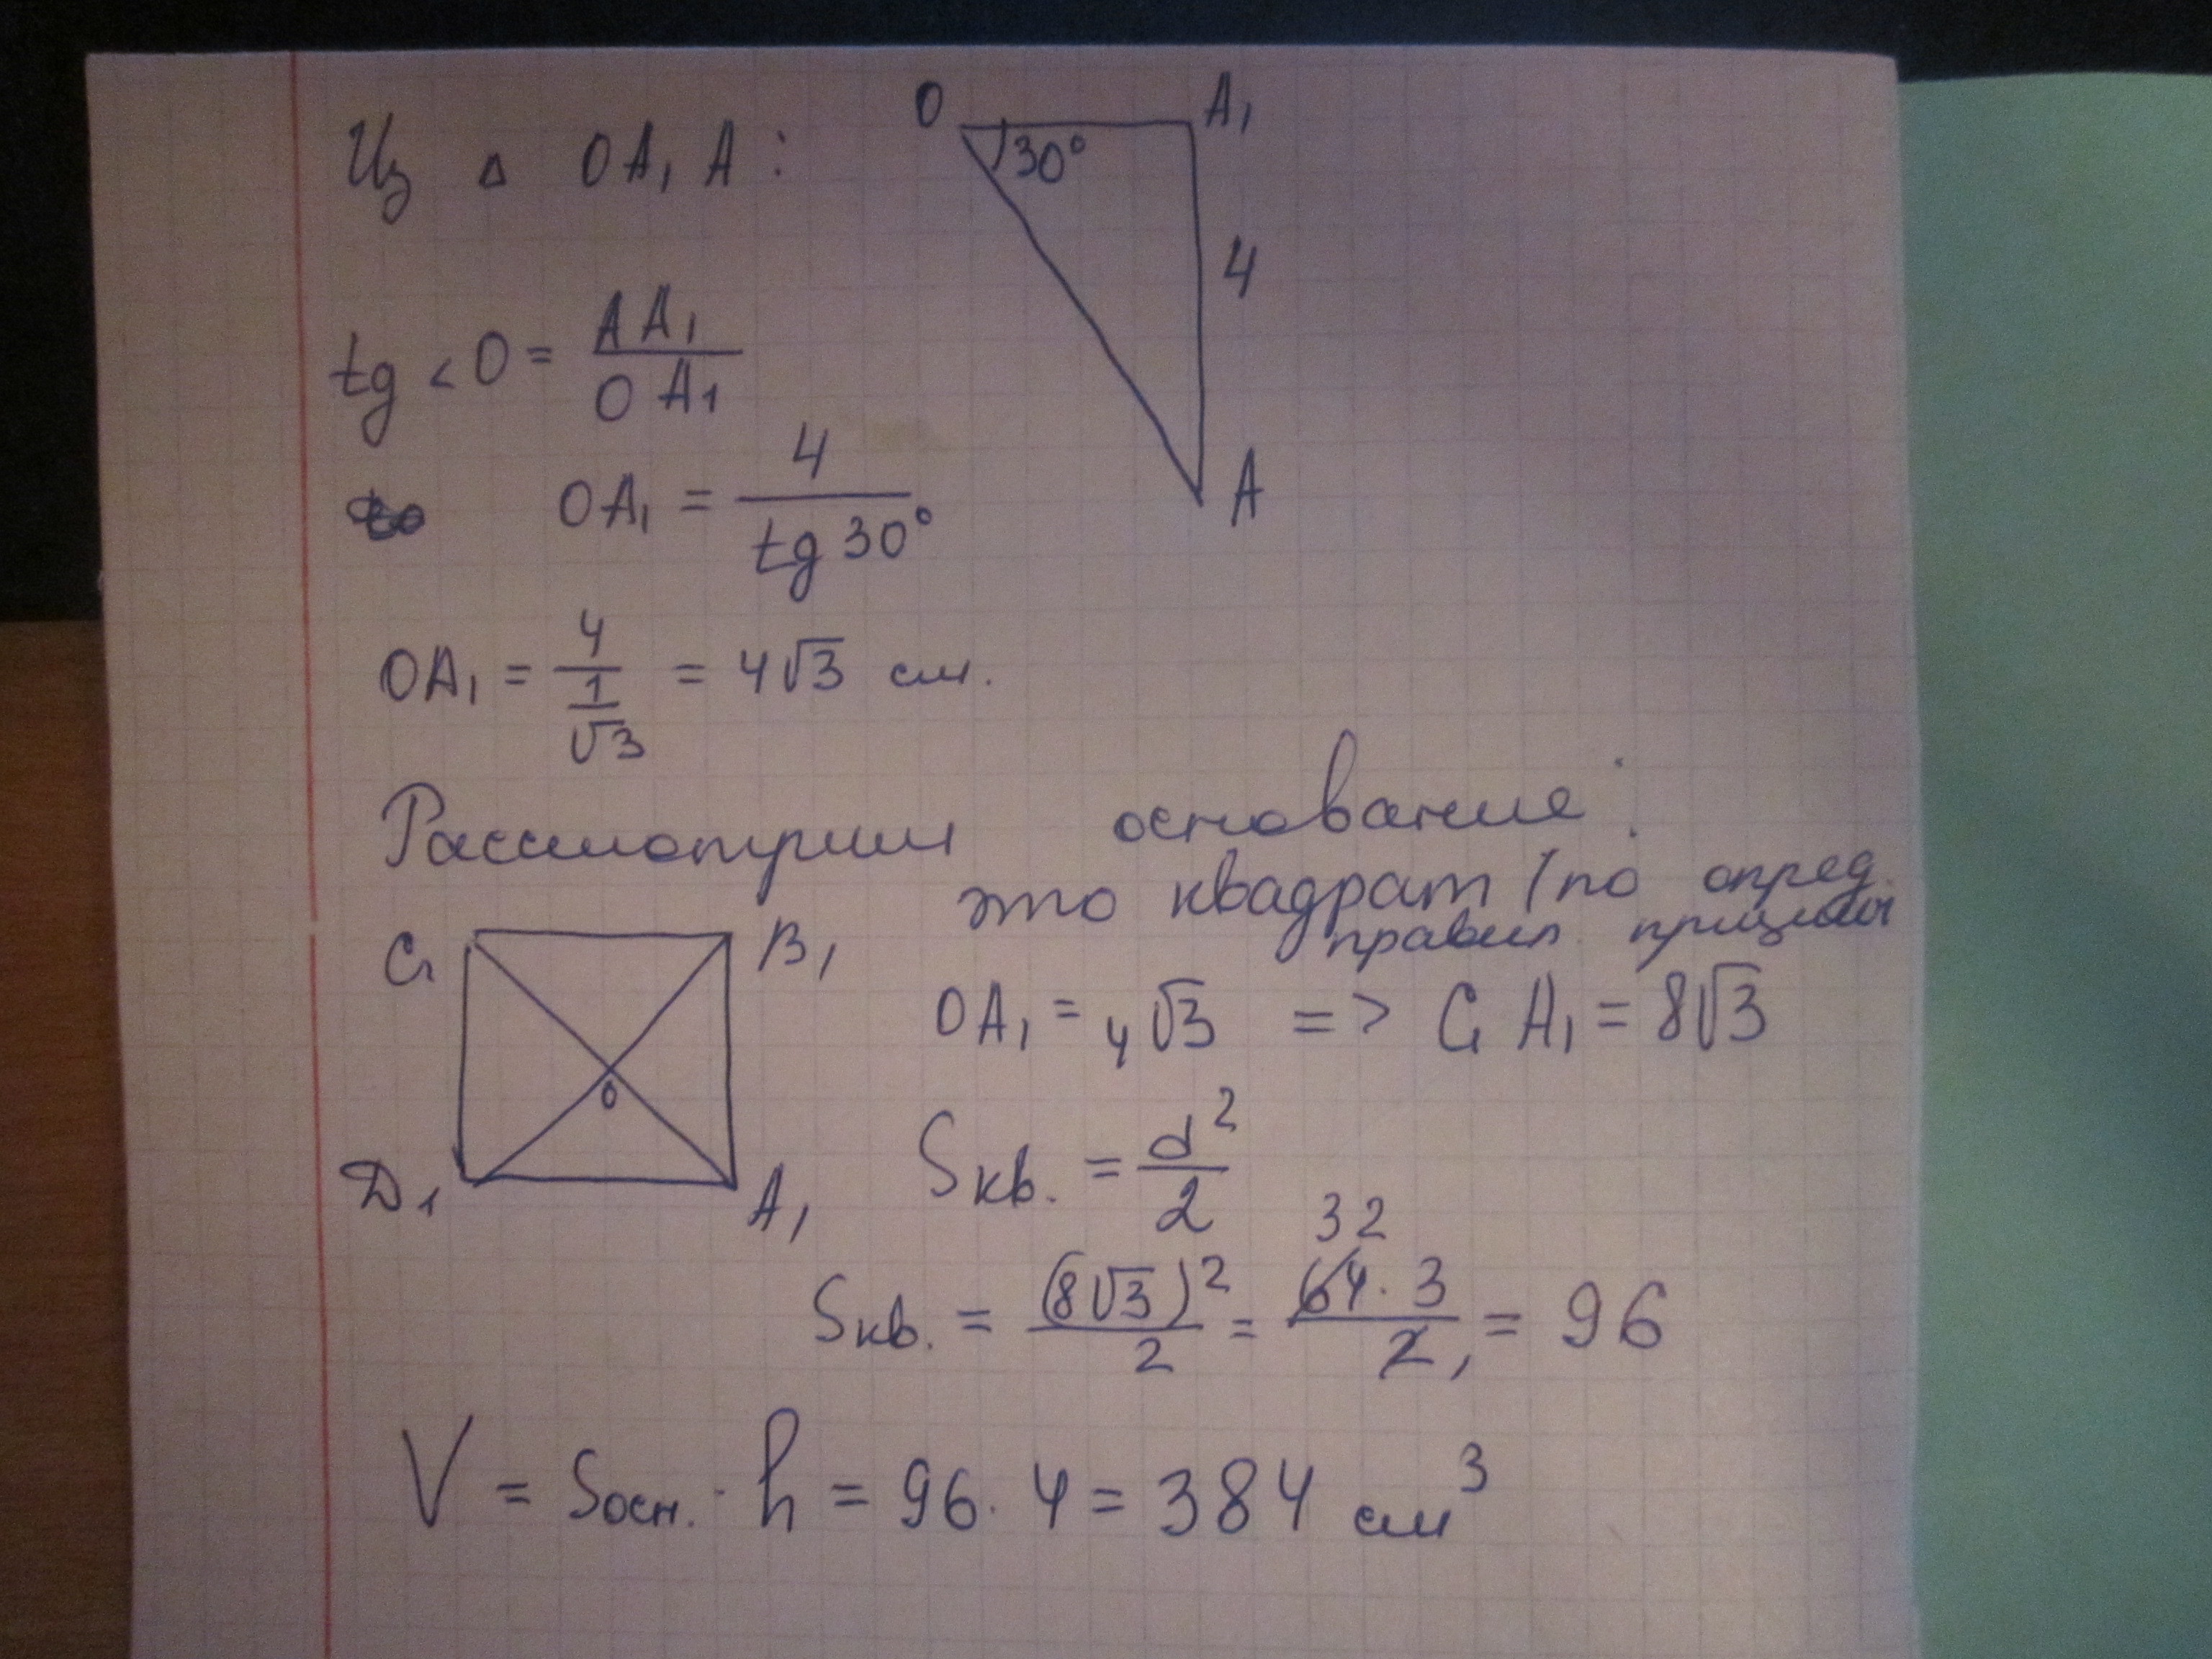 Из △ OA₁A:
O A₁
30°
4
A
tg <O = AA₁/OA₁
OA₁ = 4/tg 30°
OA₁ = 4/(1/√3) = 4√3 см.
Рассмотрим основание:
это квадрат (по опред.
правил. призмы
C₁ B₁
OA₁ = 4√3 => C₁A₁ = 8√3
O
D₁ A₁
Sкв. = d²/2
32
Sкв. = (8√3)²/2 = 64·3/2, = 96
V = Sосн. · h = 96 · 4 = 384 см³